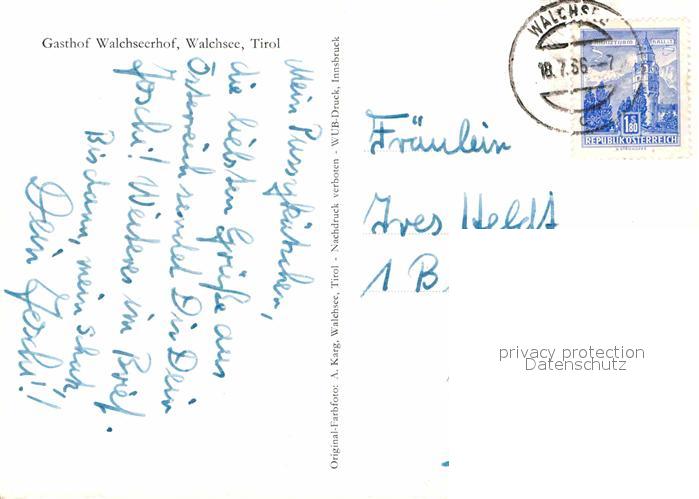 Gasthof Walchseerhof, Walchsee, Tirol
Mein Pussykätzchen,
die liebsten Grüße aus
Österreich sendet Dir Dein
Joschi! Weiteres im Brief.
Bis dann, mein Schatz,
Dein Joschi!!
Original-Farbfoto: A. Karg, Walchsee, Tirol - Nachdruck verboten - WUB-Druck, Innsbruck
WALCHSEE
18.7.66-7
MÜNZTURM HALL I.T.
1.80
S
REPUBLIK ÖSTERREICH
Fräulein
Ives Heldt
1 B
privacy protection
Datenschutz